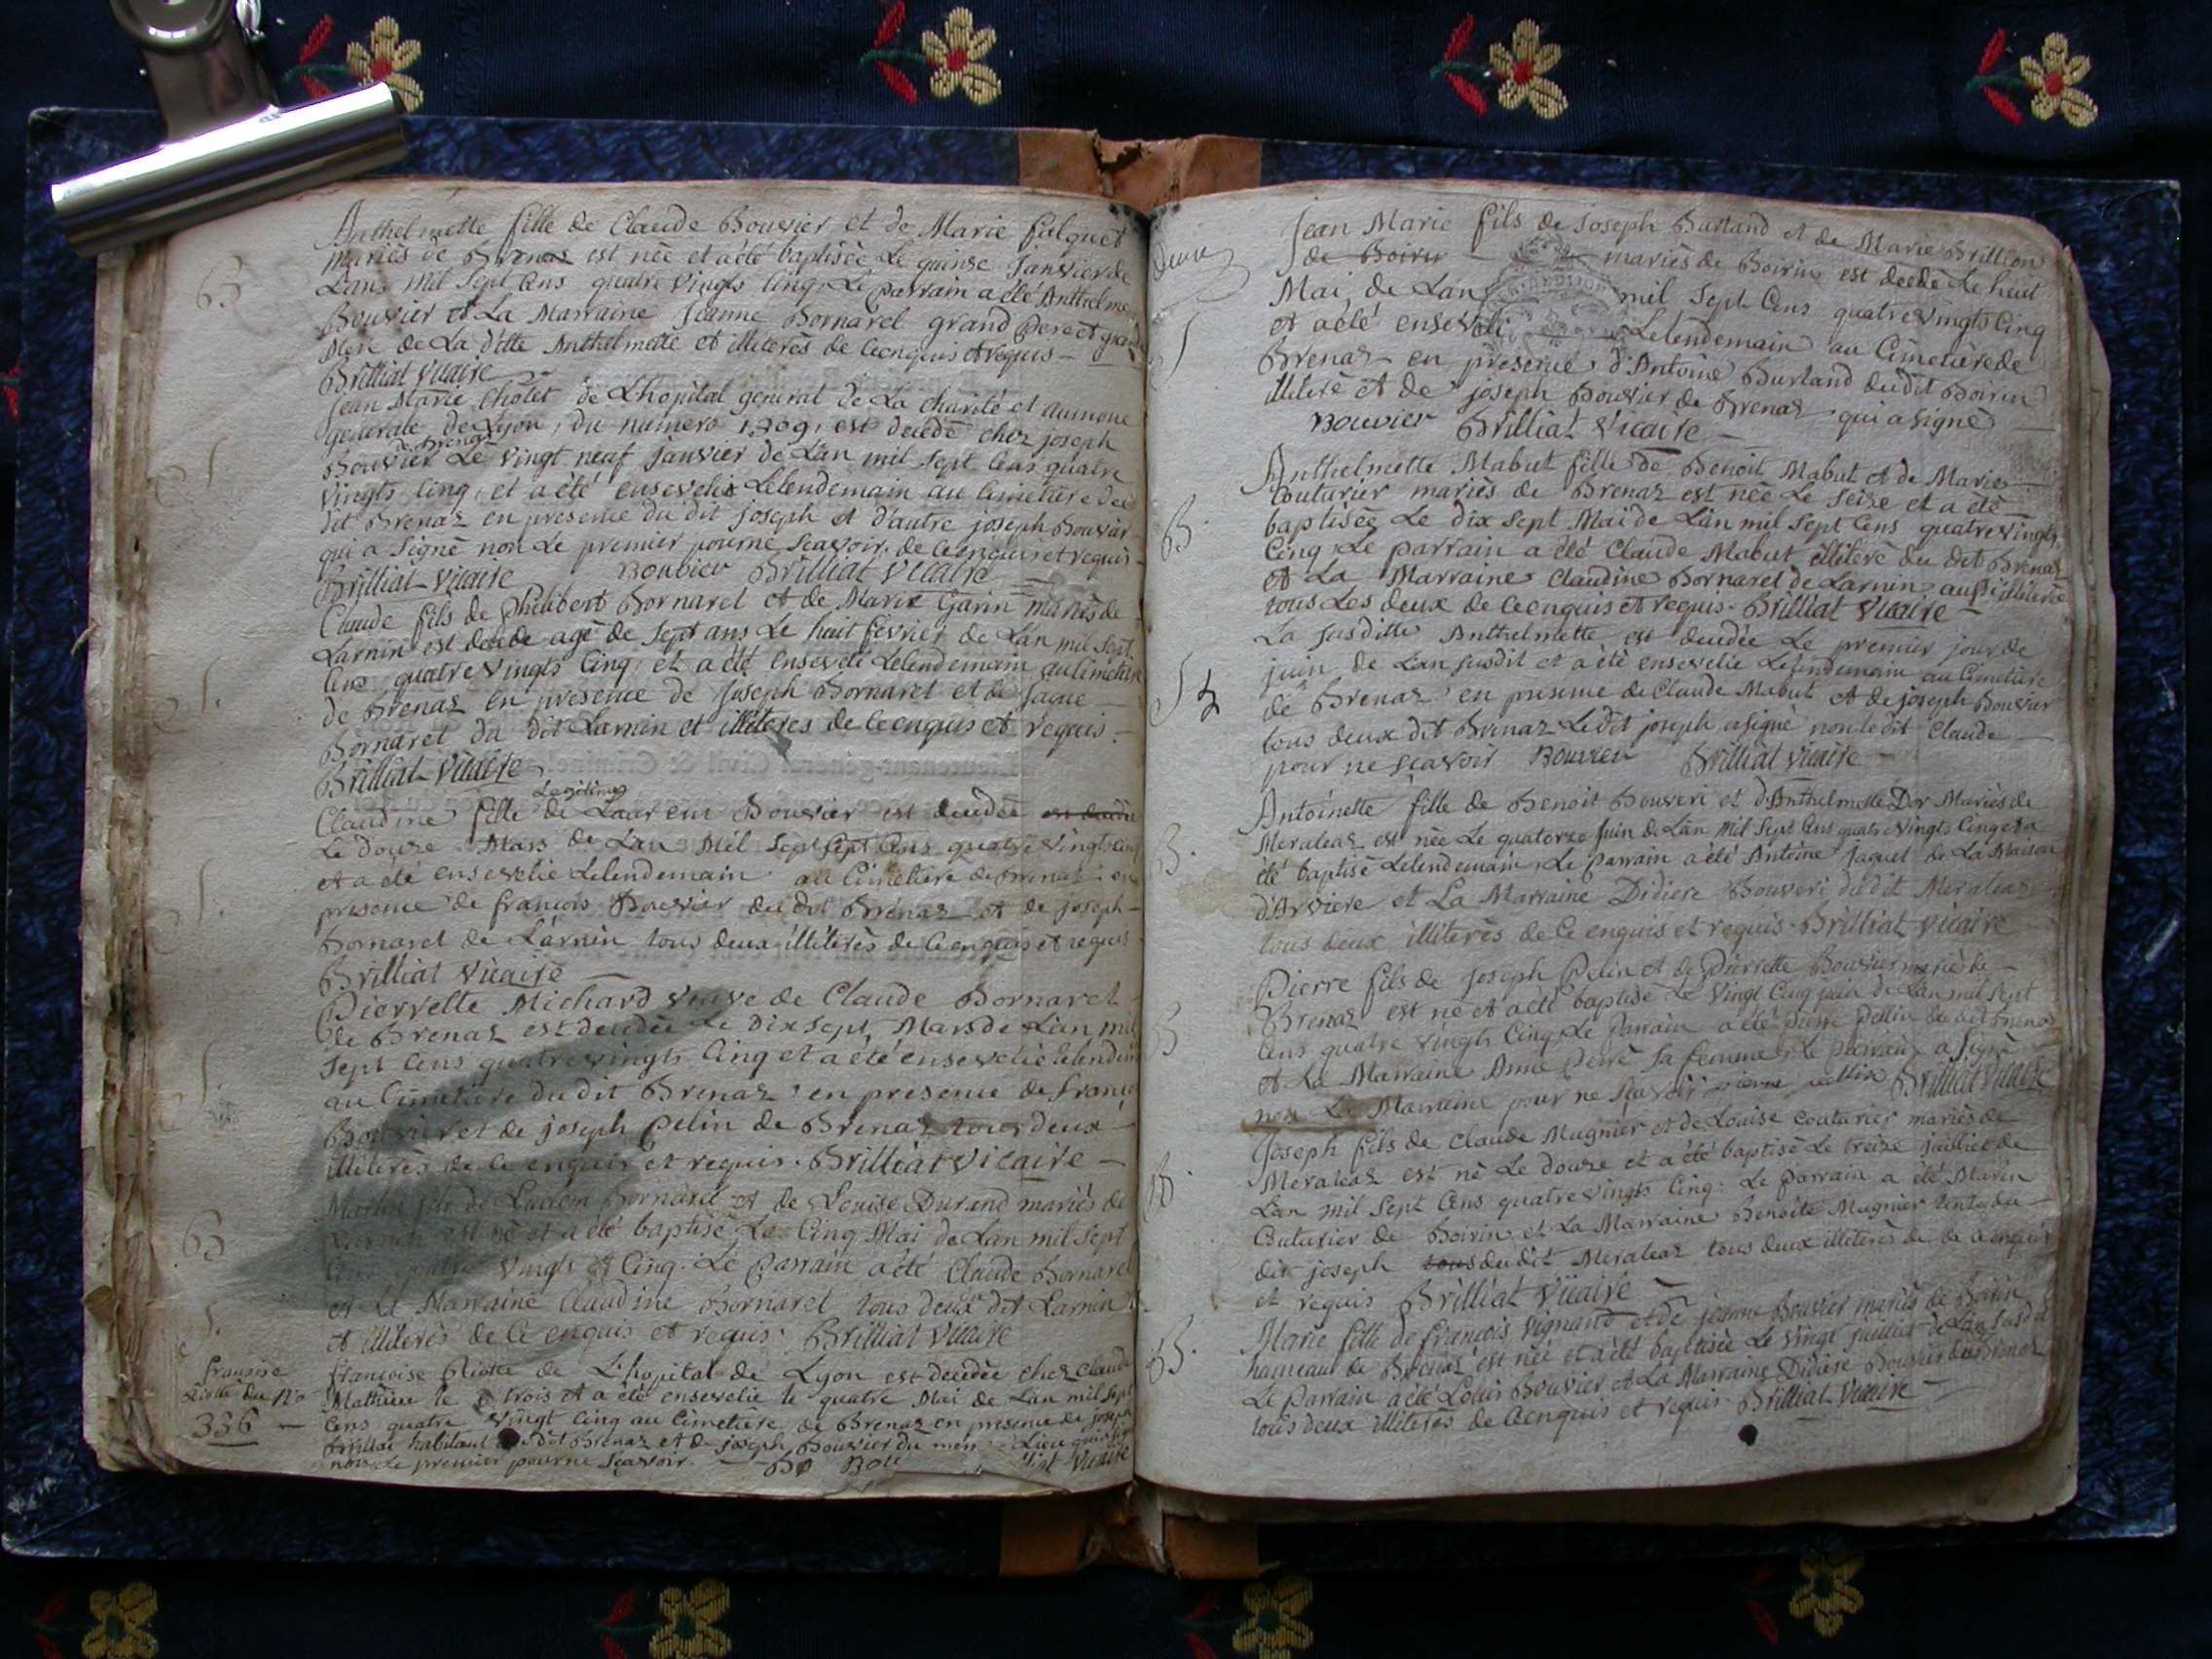 B
Anthelmette fille de Claude Bouvier et de Marie falquet
mariès de Brenaz est nèe et a èté baptisèe Le quinse Janvier de
Lans mil Sept Cens quatre vingts Cinq, Le parrain a èté Anthelme
Bouvier et La Marraine Jeanne Bornarel grand Pere et grand
Mere de La ditte Anthelmette et illiterès de Ce enquis et requis —
Brilliat Vicaire
S.
Jean Marie Cholet de Lhopital general de La charité et aumone
generale de Lyon, du numero 1,209, est decedè chez joseph
de Brenaz
Bouvier Le vingt neuf janvier de Lan mil sept Cens quatre
vingts Cinq, et a èté enseveli Lelendemain au Cimetiere du
dit Brenaz en presence du dit joseph et d'autre joseph Bouvier
qui a Signè non Le premier pour ne Scavoir de Ce enquis et requis
Brilliat Vicaire Bouvier Brilliat Vicaire
S.
Claude fils de Philibert Bornarel et de Marie Garin mariès de
Larnin est decede agè de Sept ans Le huit fèvrier de Lan mil Sept
Cens quatre vingts Cinq, et a èté enseveli Lelendemain au Cimetiere
de Brenaz en presence de Joseph Bornarel et de Jaque
Bornarel du dit Larnin et illiteres de Ce enquis et requis —
Brilliat Vicaire
Legitime
S.
Claudine fille de Laurent Bouvier est decedèe est decedèe
Le douze Mars de Lan Mil Sept Sept Cens quatre vingts Cinq
et a èté ensevelie Lelendemain au Cimetiere de Brenaz en
presence de francois Bouvier du dit Brenaz et de joseph
Bornarel de Larnin tous deux illiterès de Ce enquis et requis
Brilliat Vicaire
S.
Pierrette Michard veuve de Claude Bornarel
de Brenaz est decedèe Le Dix Sept Mars de Lan mil
Sept Cens quatre vingts Cinq et a èté ensevelie Lelendem
au Cimetiere du dit Brenaz en presence de Franç
Bouvier et de joseph Pelin de Brenaz tous deux
illiterès de Ce enquis et requis. Brilliat Vicaire —
B
Martin fils de Bornarel et de Louise Durand mariès de
est nè et a èté baptisè Le Cinq Mai de Lan mil Sept
vingts et Cinq. Le Parrain a èté Claude Bornarel
et La Marraine Claudine Bornarel tous deux dit Larnin
et illiterès de Ce enquis et requis. Brilliat Vicaire
S.
françoise
du No
336 —
françoise de L'hopital de Lyon est decedèe chez Claude
Mathieu le trois et a èté ensevelie le quatre Mai de Lan mil Sept
Cens quatre vingt Cinq au Cimetiere de Brenaz en presence de joseph
habitant du dit Brenaz et de joseph Bouvier du Lieu
non Le premier pour ne Scavoir. Vicaire
Deux
S
Jean Marie fils de Joseph Burland et de Marie Brillion
de Boirin mariès de Boirin est decedè Le huit
Mai, de Lan mil Sept Cens quatre vingts Cinq
et a èté enseveli Lelendemain au Cimetiere de
Brenaz en presence d'Antoine Burland du dit Boirin
illiterè et de joseph Bouvier de Brenaz qui a Signè
Bouvier Brilliat Vicaire —
B.
Anthelmette Mabut fille de Benoit Mabut et de Marie
Couturier mariès de Brenaz est nèe Le Seize et a èté
baptisèe Le dix Sept Mai de Lan mil Sept Cens quatre vingts
Cinq, Le parrain a èté Claude Mabut illiterè du dit Brenaz
et La Marraine Claudine Bornarel de Larnin aussi illiterèe
tous Les deux de Ce enquis et requis. Brilliat Vicaire —
S
La Susditte Anthelmette est decedèe Le premier jour de
juin de Lan Susdit et a èté ensevelie Lelendemain au Cimetiere
de Brenaz en presence de Claude Mabut et de joseph Bouvier
tous deux dit Brenaz Le dit joseph a signè non le dit Claude
pour ne Scavoir Bouvier Brilliat Vicaire —
B.
Antoinette fille de Benoit Bouveri et d'Anthelmette Dor Mariès de
Meraleaz est nèe Le quatorze Juin de Lan Mil Sept Cens quatre vingts Cinq et a
èté baptisè Lelendemain, Le parrain a èté Antoine Jaquet de La Maison
d'Arviere et La Marraine Didiere Bouveri du dit Meraleaz
tous deux illiterès de Ce enquis et requis. Brilliat Vicaire
B
Pierre fils de Joseph Pelin et de Pierrette Bouvier mariès de
Brenaz est nè et a èté baptisè Le vingt Cinq juin de Lan mil Sept
Cens quatre vingts Cinq, Le Parrain a èté pierre pellin du dit Brenaz
et La Marraine Anne Perrè Sa femme, Le parrain a Signè
non La Marraine pour ne Scavoir pierre pellin Brilliat Vicaire
B.
Joseph fils de Claude Mugnier et de Louise Couturier mariès de
Meraleaz est nè Le douze et a èté baptisè Le treize juilliet de
Lan mil Sept Cens quatre vingts Cinq. Le Parrain a èté Marin
Couturier de Boirin et La Marraine Benoite Mugnier tente du
dit joseph tous du dit Meraleaz tous deux illiterès de de Ce enquis
et requis Brilliat Vicaire —
B.
Marie fille de francois Vignand et de jeanne Bouvier mariès de Boirin
hameau de Brenaz est nèe et a èté baptisèe Le vingt juilliet de Lan Susdit
Le Parrain a èté Louis Bouvier et La Marraine Didiere Bouvier de Brenaz
tous deux illiterès de Ce enquis et requis. Brilliat Vicaire —